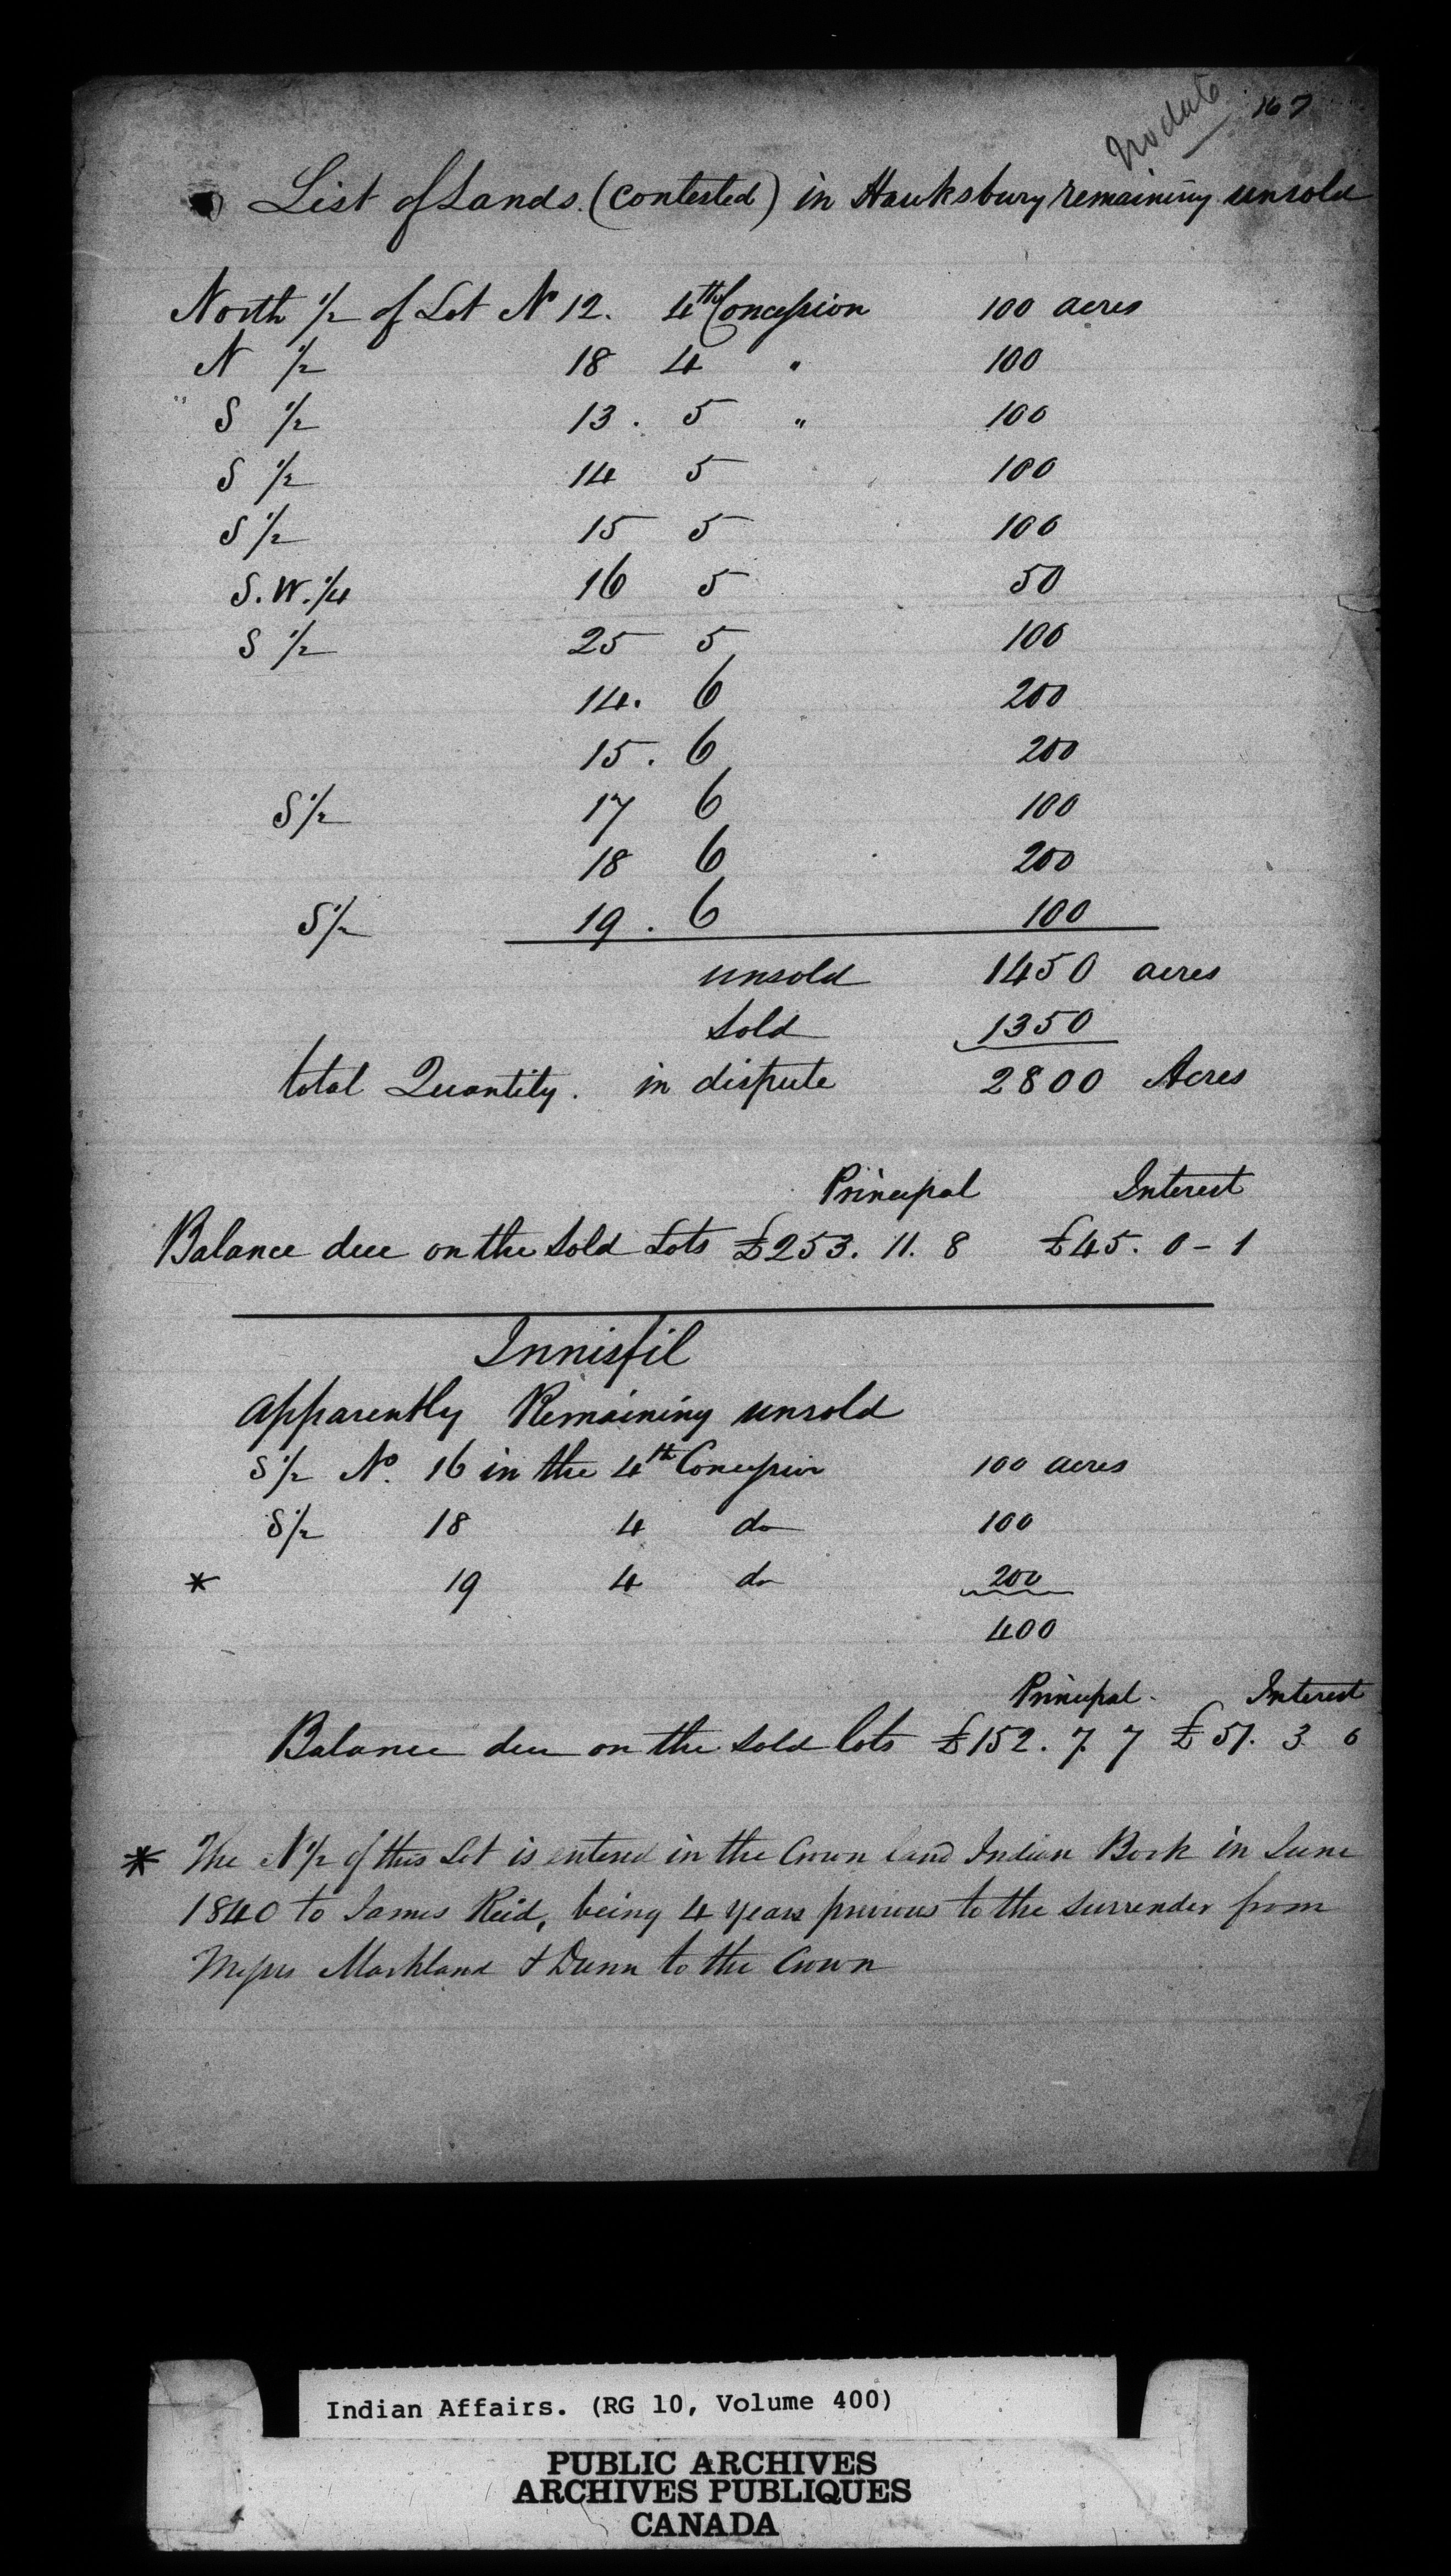 No date 167
List of Lands. (contested) in Hawksbury remaining unsold
North 1/2 of Lot No 12. 4th Concession 100 acres
N 1/2 18 4 " 100
" S 1/2 13. 5 " 100
S 1/2 14 5 100
S 1/2 15 5 100
S.W. 1/4 16 5 50
S 1/2 25 5 100
14. 6 200
15. 6 200
S 1/2 17 6 100
18 6 200
S 1/2 19. 6 100
unsold 1450 acres
Sold 1350
total Quantity. in dispute 2800 Acres
Principal Interest
Balance due on the Sold Lots £253. 11. 8 £45. 0 - 1
Innisfil
apparently Remaining unsold
S 1/2 No. 16 in the 4th Concession 100 acres
S 1/2 18 4 do 100
* 19 4 do 200
400
Principal. Interest
Balance due on the Sold lots £152. 7. 7 £51. 3 6
* The N 1/2 of this Lot is entered in the Crown Land Indian Book in June
1840 to James Reid, being 4 years previous to the surrender from
Messrs Markland & Dunn to the Crown
Indian Affairs. (RG 10, Volume 400)
PUBLIC ARCHIVES
ARCHIVES PUBLIQUES
CANADA